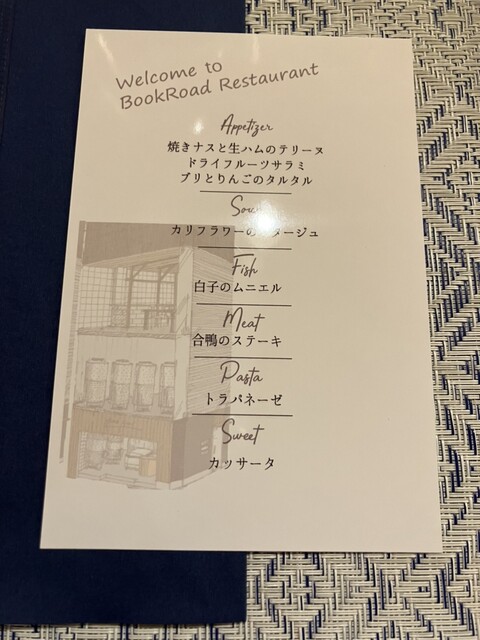 Welcome to
BookRoad Restaurant
Appetizer
焼きナスと生ハムのテリーヌ
ドライフルーツサラミ
ブリとりんごのタルタル
カリフラワーの タージュ
Fish
白子のムニエル
Meat
合鴨のステーキ
Pasta
トラパネーゼ
Sweet
カッサータ